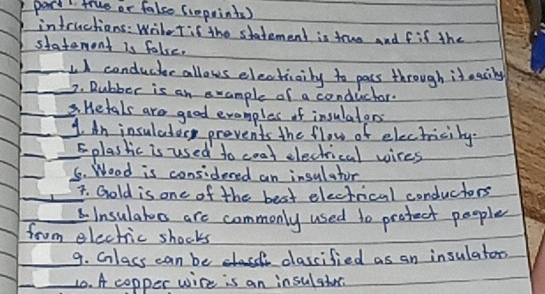 part 1. true or false (10points)
intructions: Write T if the statement is true and f if the
statement is false.
1. A conductor allows electricity to pass through it easily
2. Rubber is an example of a conductor.
3. Metals are good examples of insulators
4. An insulators prevents the flow of electricity.
5. plastic is used to coat electrical wires
6. Wood is considered an insulator
7. Gold is one of the best electrical conductors
8. Insulators are commonly used to protect people
from electric shocks
9. Glass can be classified as an insulator
10. A copper wire is an insulator.